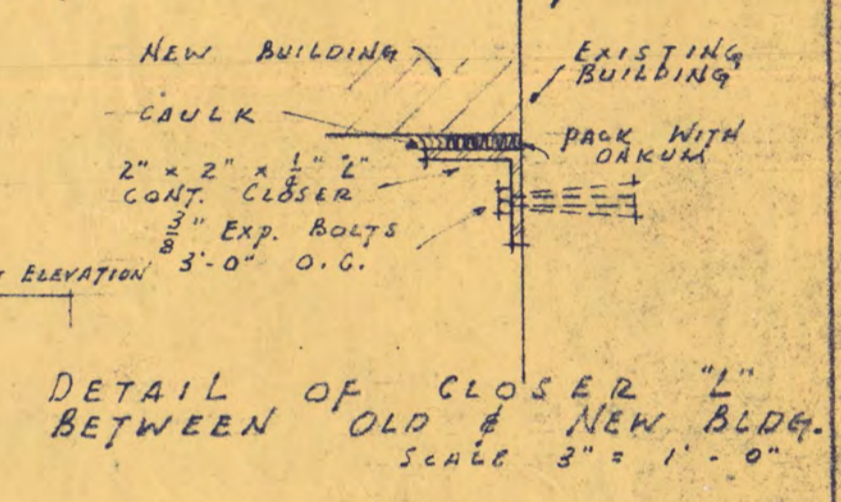 NEW BUILDING
EXISTING
BUILDING
CAULK
PACK WITH
OAKUM
2" x 2" x "L"
CONT. CLOSER
3/8" EXP. BOLTS
3'-0" O.C.
ELEVATION
DETAIL OF CLOSER "L"
BETWEEN OLD & NEW BLDG.
SCALE 3" = 1'-0"